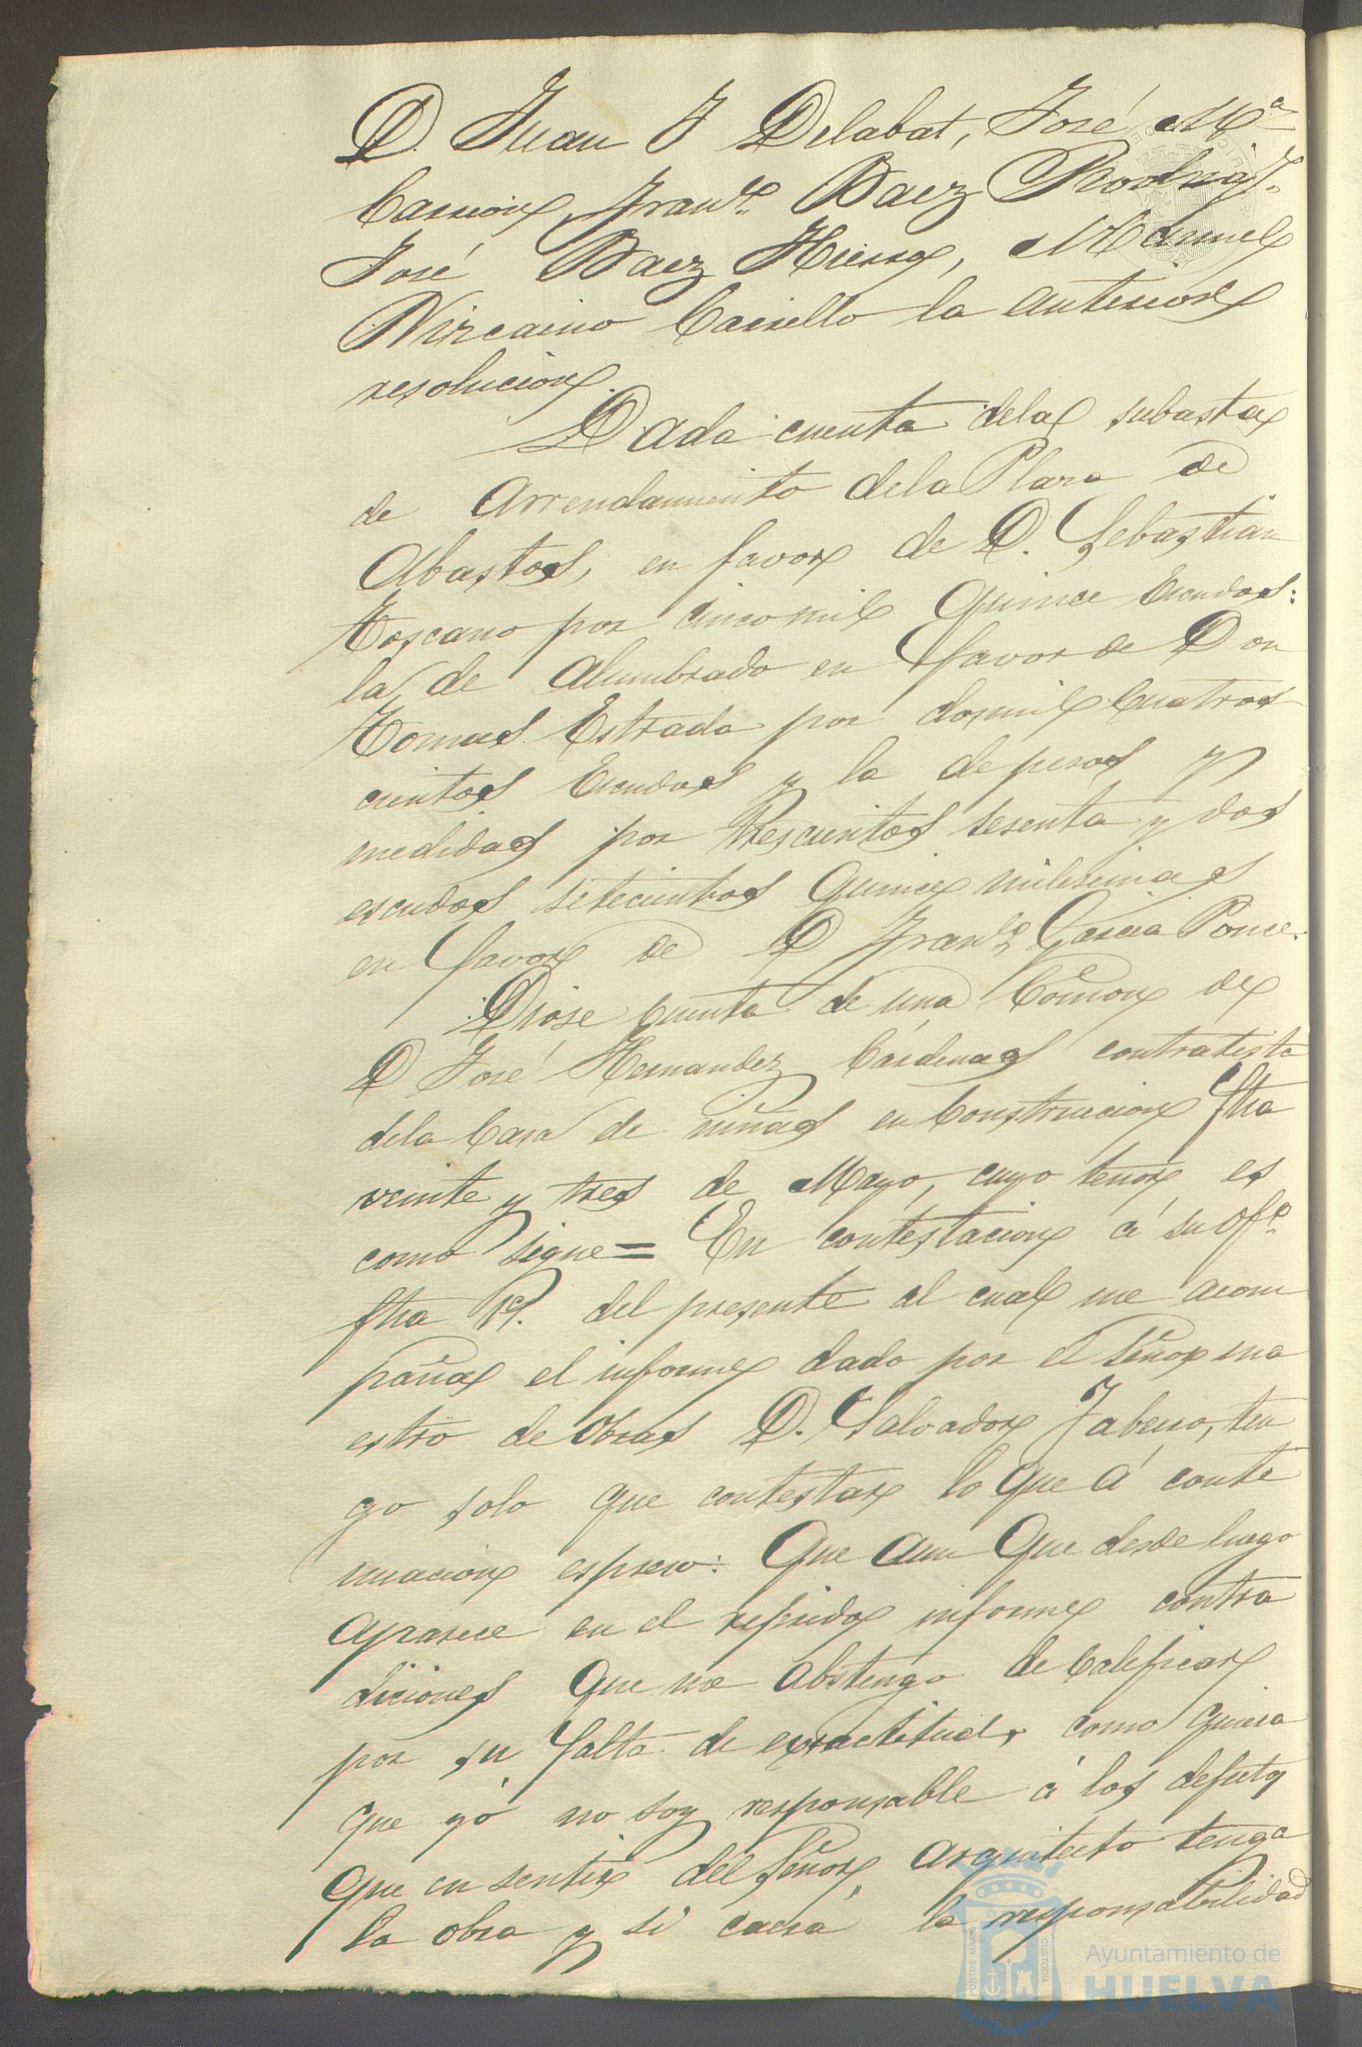 D. Juan J Delabat, José Mª
Carrion, Franco. Baez Rodrigz.
José Baez Hierro, Manuel
Vizcaino Carrillo la anterior
resolucion.
Dada cuenta dela subasta
de arrendamiento dela Plaza de
Abastos, en favor de D. Sebastian
Toscano por cinco mil quince Escudos:
la de alumbrado en favor de Don
Tomas Estrada por dosmil cuatros
cientos Escudos y la de pesos y
medidas por trescientos sesenta y dos
escudos setecientos quince milesimas
en favor de D Franco. Garcia Ponce.
Diose cuenta de una Comon de
D José Hernandez Cárdenas contratista
dela Casa de niñas en Construccion ftha
veinte y tres de Mayo, cuyo tenor es
como sigue = En contestacion á su Ofo.
ftha del presente al cual me acom
paña el informe dado por el Señor ma
estro de Obras D. Salvador, ten
go solo que contestar lo que á conti
nuacion espreso: Que aun que desde luego
aparece en el referido informe contra
diciones que me abstengo de calificar
por su falta de exactitud, como quiera
que yó no soy responsable á los defectos
que en sentir del Señor arquitecto tenga
la obra y si caera la responsabilidad
Ayuntamiento de
HUELVA